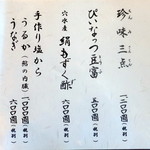 珍味三点 一二〇〇円(税別)
ぴいなっつ豆富 五〇〇円(税別)
六水産 絹もずく酢 六〇〇円(税別)
手作り塩から
うるか(鮎の内臓) 六〇〇円(税別)
うなぎ 六〇〇円(税別)